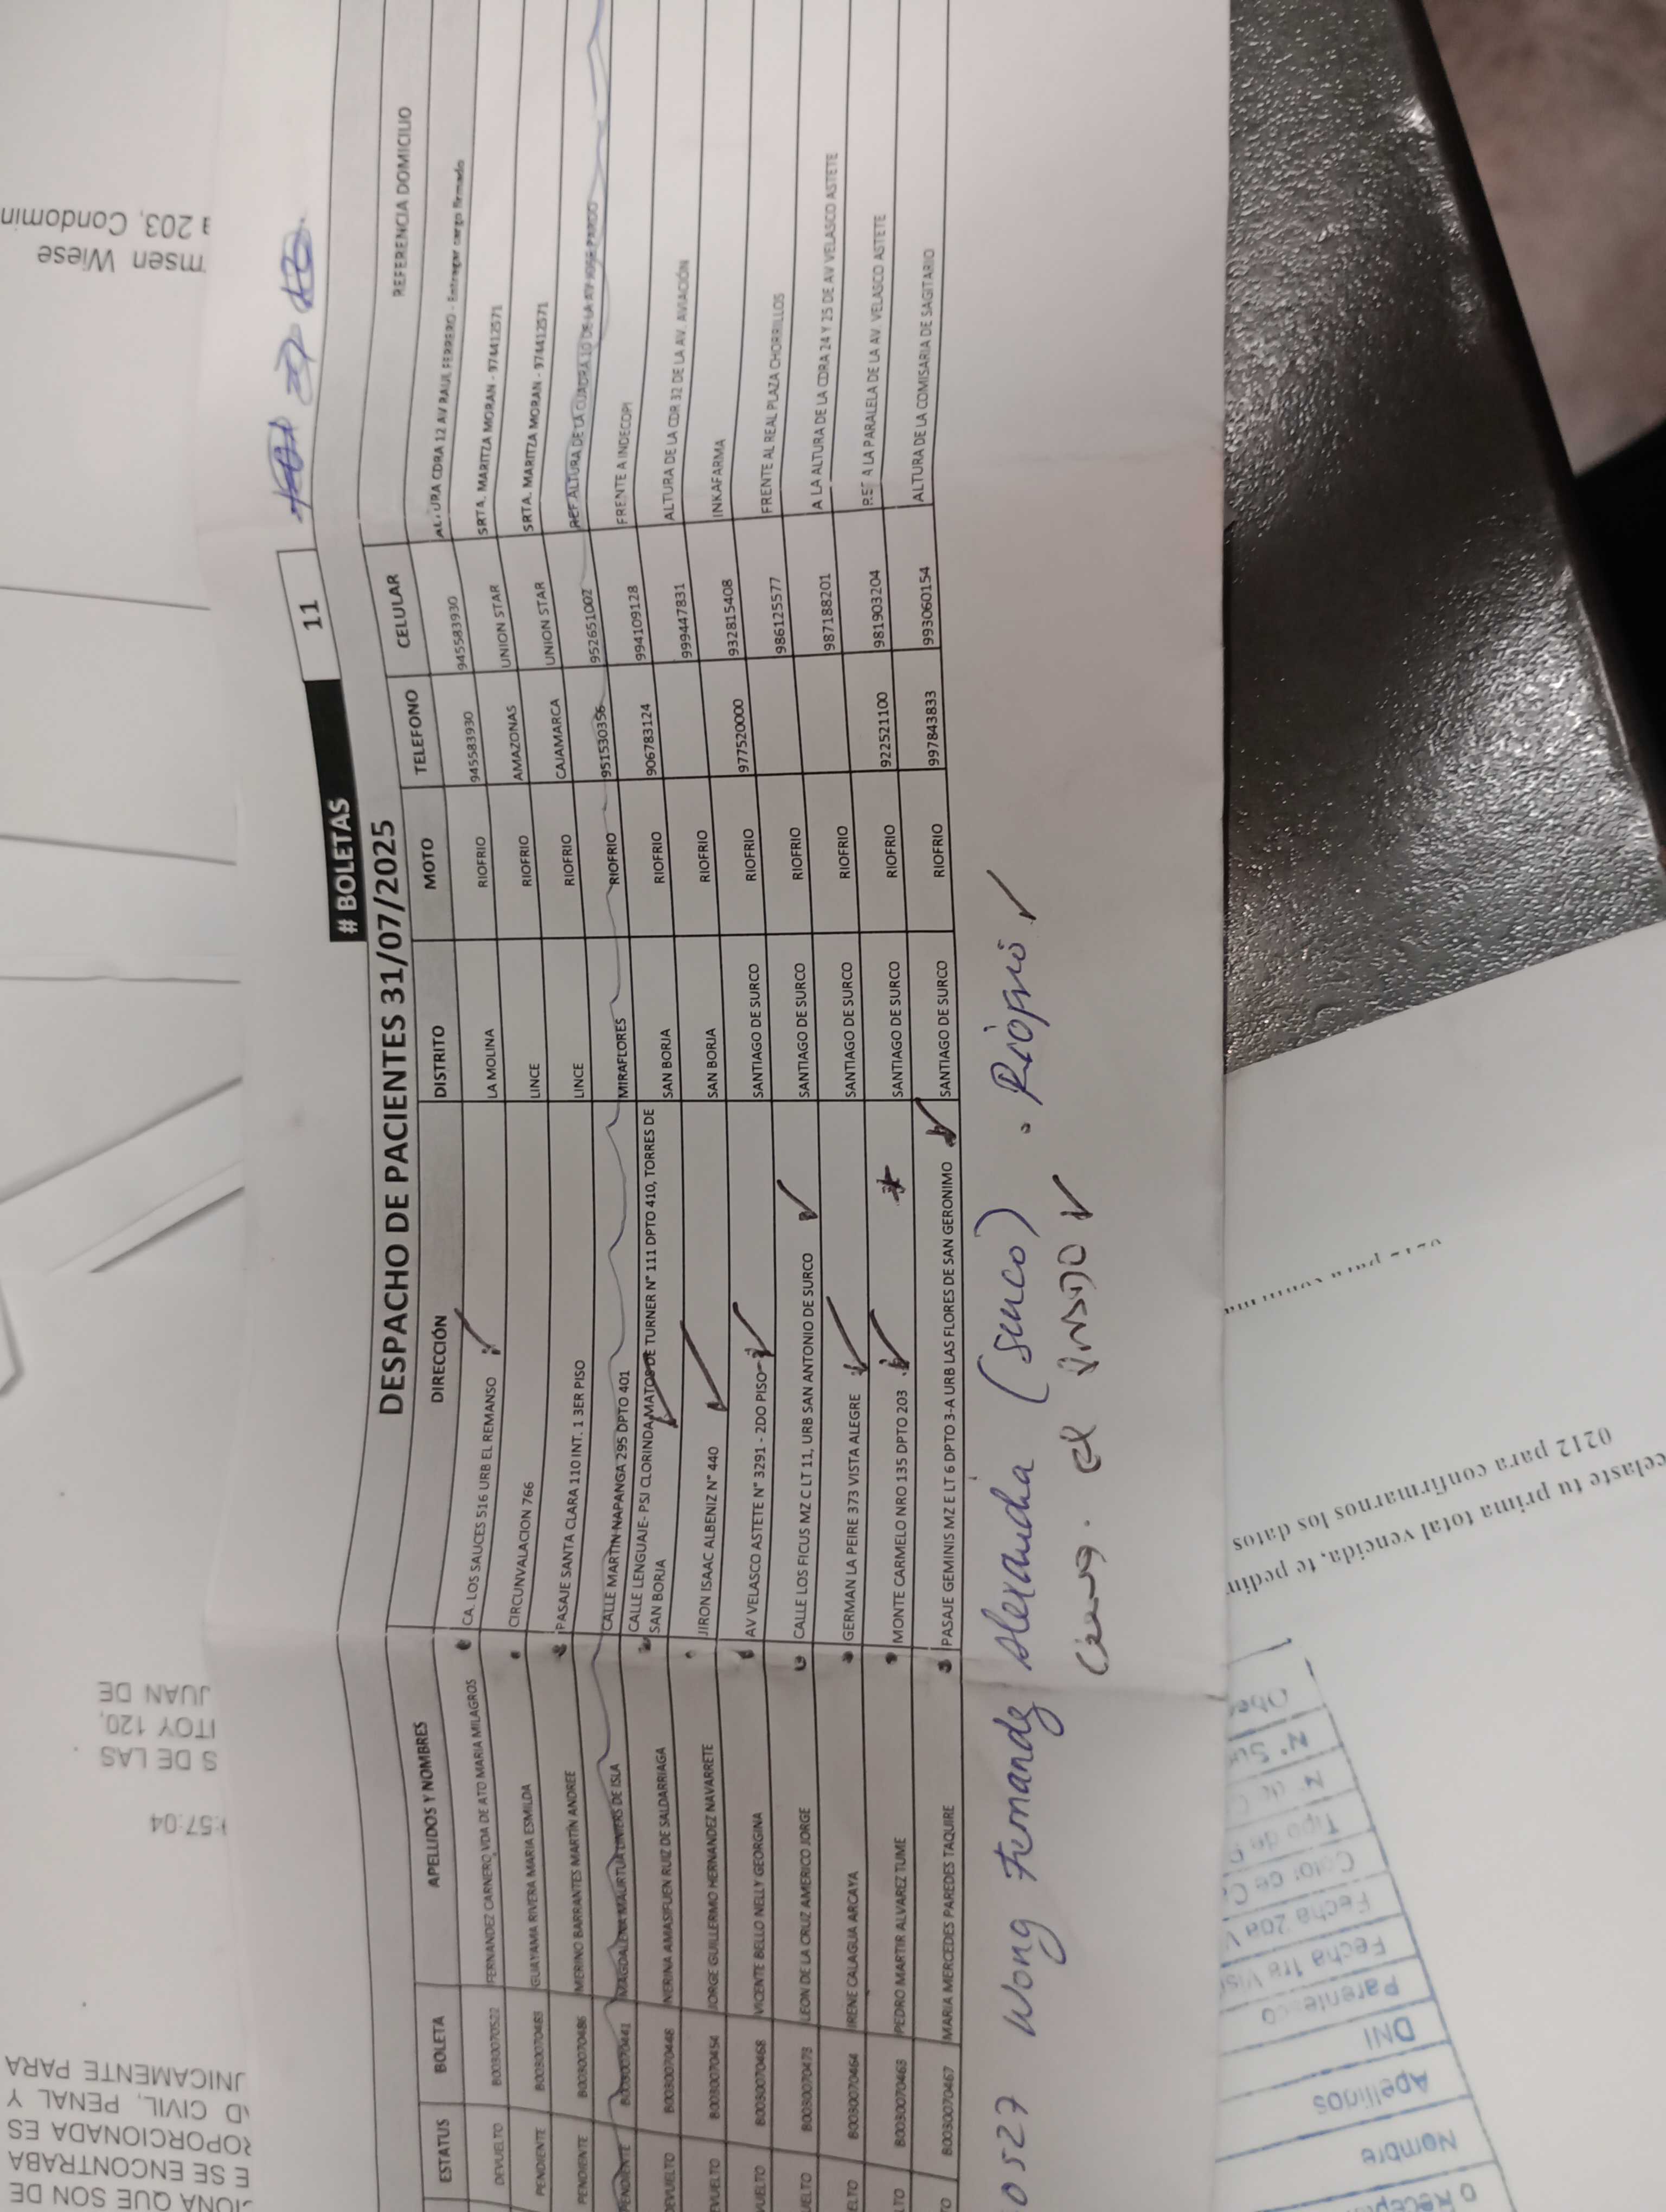 # BOLETAS 11
DESPACHO DE PACIENTES 31/07/2025
ESTATUS BOLETA APELLIDOS Y NOMBRES DIRECCIÓN DISTRITO MOTO TELEFONO CELULAR REFERENCIA DOMICILIO
DEVUELTO B0030070522 FERNANDEZ CARNERO VDA DE ATO MARIA MILAGROS CA. LOS SAUCES 516 URB EL REMANSO LA MOLINA RIOFRIO 945583930 945583930 ALTURA CDRA 12 AV RAUL FERRERO - Entregar cargo firmado
PENDIENTE B0030070483 GUAYAMA RIVERA MARIA ESMILDA CIRCUNVALACION 766 LINCE RIOFRIO AMAZONAS UNION STAR SRTA. MARITZA MORAN - 974412571
PENDIENTE B0030070486 MERINO BARRANTES MARTÍN ANDREE PASAJE SANTA CLARA 110 INT. 1 3ER PISO LINCE RIOFRIO CAJAMARCA UNION STAR SRTA. MARITZA MORAN - 974412571
PENDIENTE B0030070441 MAGDALENA MAURTUA LINIERS DE ISLA CALLE MARTIN NAPANGA 295 DPTO 401 MIRAFLORES RIOFRIO 951530356 952651002 REF. ALTURA DE LA CUADRA 10 DE LA AV JOSE PARDO
DEVUELTO B0030070448 NERINA AMASIFUEN RUIZ DE SALDARRIAGA CALLE LENGUAJE- PSJ CLORINDA MATOS DE TURNER N° 111 DPTO 410, TORRES DE SAN BORJA SAN BORJA RIOFRIO 906783124 994109128 FRENTE A INDECOPI
EVUELTO B0030070454 JORGE GUILLERMO HERNANDEZ NAVARRETE JIRON ISAAC ALBENIZ N° 440 SAN BORJA RIOFRIO 999447831 ALTURA DE LA CDR 32 DE LA AV. AVIACIÓN
VUELTO B0030070468 VICENTE BELLO NELLY GEORGINA AV VELASCO ASTETE N° 3291 - 2DO PISO SANTIAGO DE SURCO RIOFRIO 977520000 932815408 INKAFARMA
VUELTO B0030070473 LEON DE LA CRUZ AMERICO JORGE CALLE LOS FICUS MZ C LT 11, URB SAN ANTONIO DE SURCO SANTIAGO DE SURCO RIOFRIO 986125577 FRENTE AL REAL PLAZA CHORRILLOS
ELTO B0030070464 IRENE CALAGUA ARCAYA GERMAN LA PEIRE 373 VISTA ALEGRE SANTIAGO DE SURCO RIOFRIO 987188201 A LA ALTURA DE LA CDRA 24 Y 25 DE AV VELASCO ASTETE
LTO B0030070463 PEDRO MARTIR ALVAREZ TUME MONTE CARMELO NRO 135 DPTO 203 SANTIAGO DE SURCO RIOFRIO 922521100 981903204 REF A LA PARALELA DE LA AV. VELASCO ASTETE
TO B0030070467 MARIA MERCEDES PAREDES TAQUIRE PASAJE GEMINIS MZ E LT 6 DPTO 3-A URB LAS FLORES DE SAN GERONIMO SANTIAGO DE SURCO RIOFRIO 997843833 993060154 ALTURA DE LA COMISARIA DE SAGITARIO
0527 Wong Fernandez Alexandra (Surco) Riofrio
msen Wiese
203, Condomin
JUAN DE
ITOY 120,
S DE LAS
:57:04
UNICAMENTE PARA
CIVIL, PENAL Y
ROPORCIONADA ES
E SE ENCONTRABA
IONA QUE SON DE
celaste tu prima total vencida, te pedim
0212 para confirmarnos los datos
Nombre
Apellidos
DNI
Parentesco
Fecha 1ra Visi
Fecha 2da V
Color de C
Tipo de